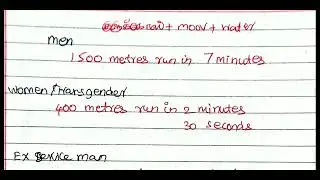 + moov + water
men
1500 metres run in 7 minutes
women/transgender
400 metres run in 2 minutes
30 seconds
Ex service man